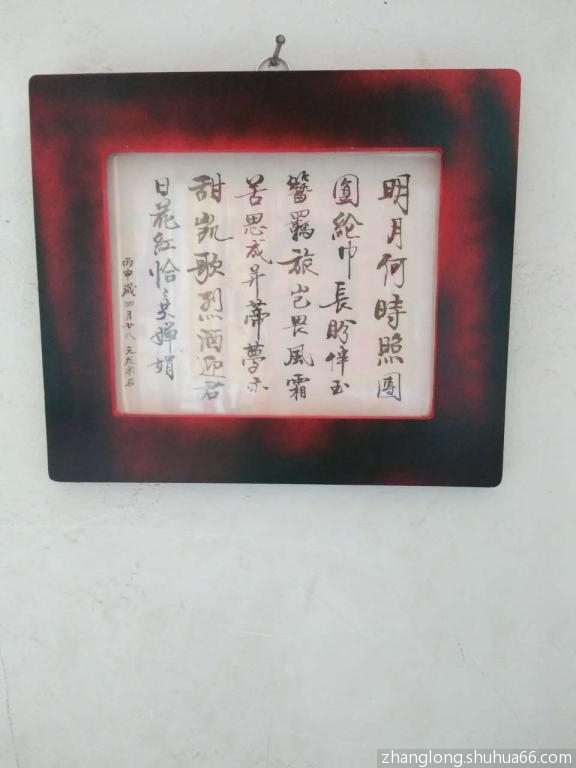 明月何時照團
圓綸巾長盼伴玉
簪羈旅豈畏風霜
苦思成并蒂夢亦
甜凱歌烈酒迎君
日花紅恰美嬋娟
丙申歲四月廿八
zhanglong.shuhua66.com